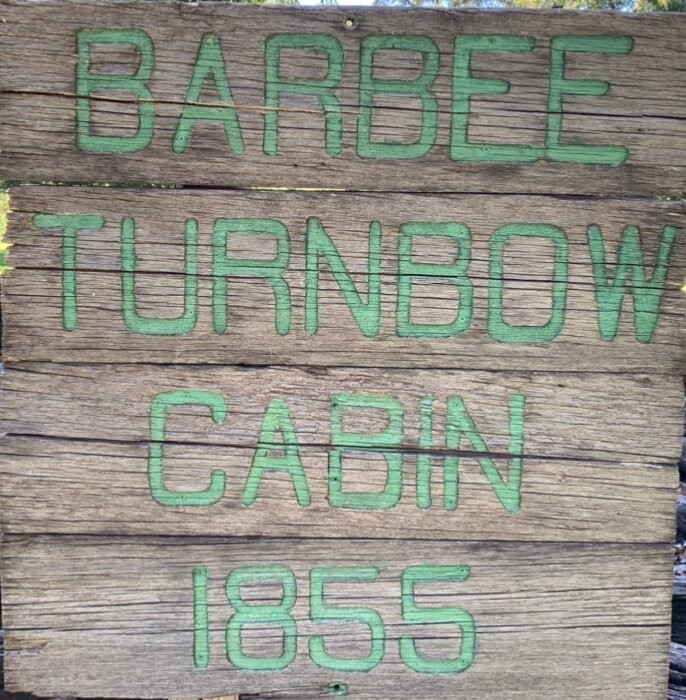 BARBEE
TURNBOW
CABIN
1855